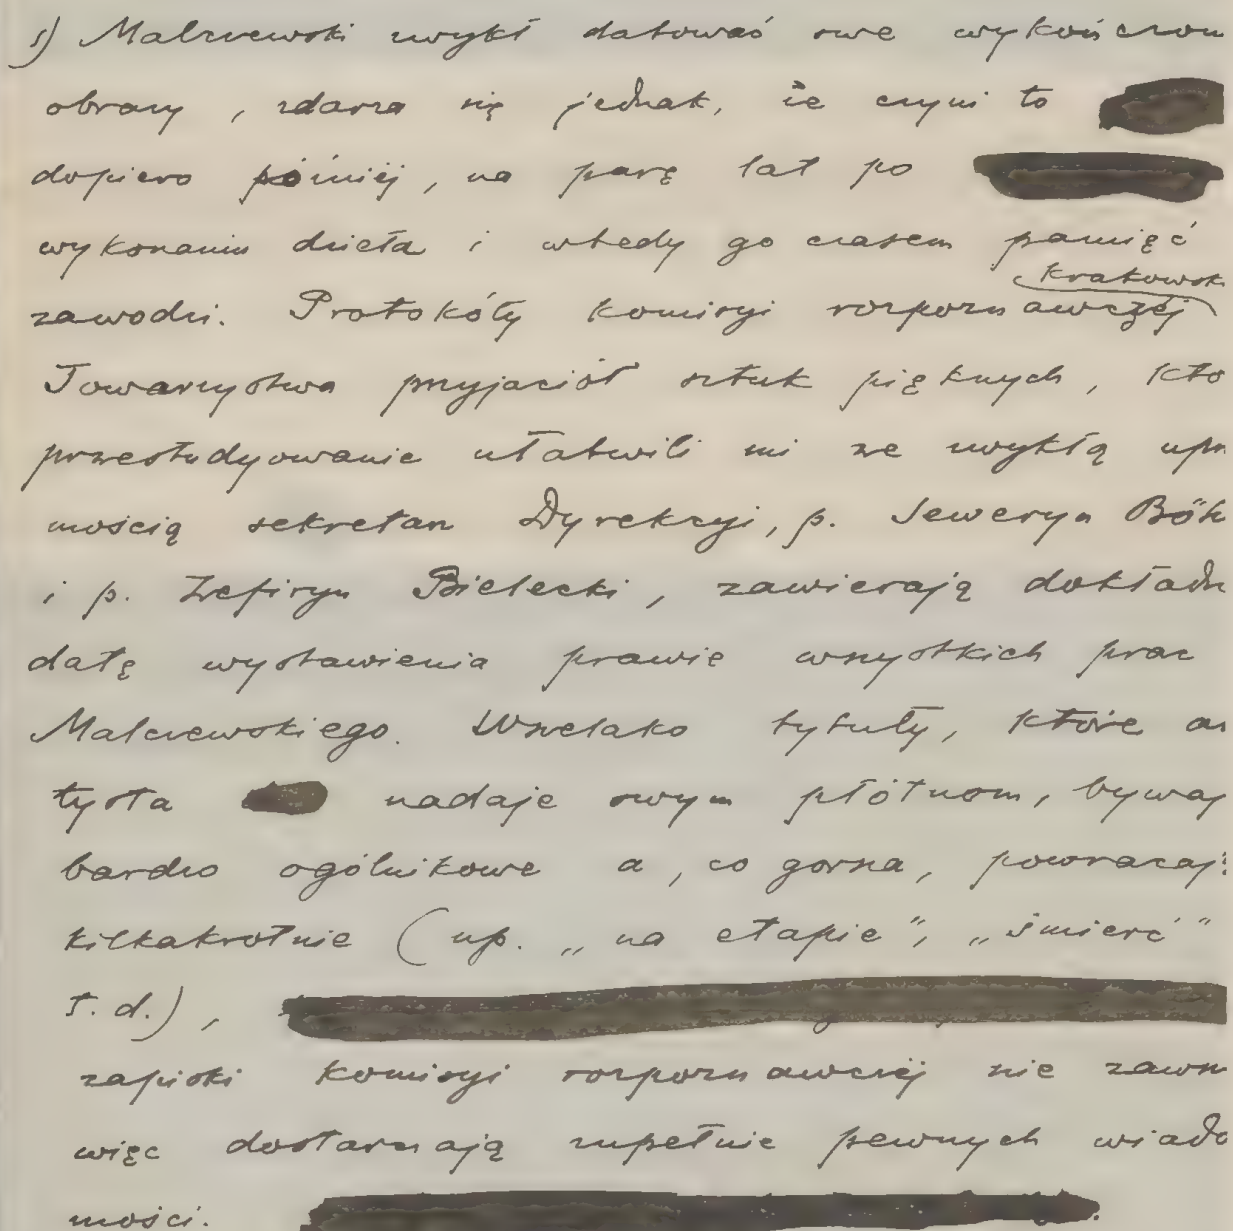 s) Malczewski zwykł datować swe wykończon
obrazy, zdarza się jednak, że czyni to
dopiero później, na parę lat po
wykonaniu dzieła i wtedy go czasem pamięć
krakowsk
zawodzi. Protokóły komisyi rozpoznawczéj
Towarzystwa przyjaciół sztuk pięknych, któ
przestudyowanie ułatwili mi ze zwykłą uprz
mością sekretarz Dyrekcyi, p. Seweryn Böh
i p. Zefiryn Bielecki, zawierają dokładn
datę wystawienia prawie wszystkich prac
Malczewskiego. Wszelako tytuły, które ar
tysta nadaje swym płótnom, bywaj
bardzo ogólnikowe a, co gorsza, powracają
kilkakrotnie (np. „na etapie", „śmierć"
t. d.),
zapiski komisyi rozpoznawczéj nie zawsz
więc dostarczają zupełnie pewnych wiado
mości.